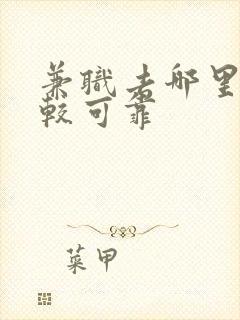 兼職去哪里
較可靠
菜甲